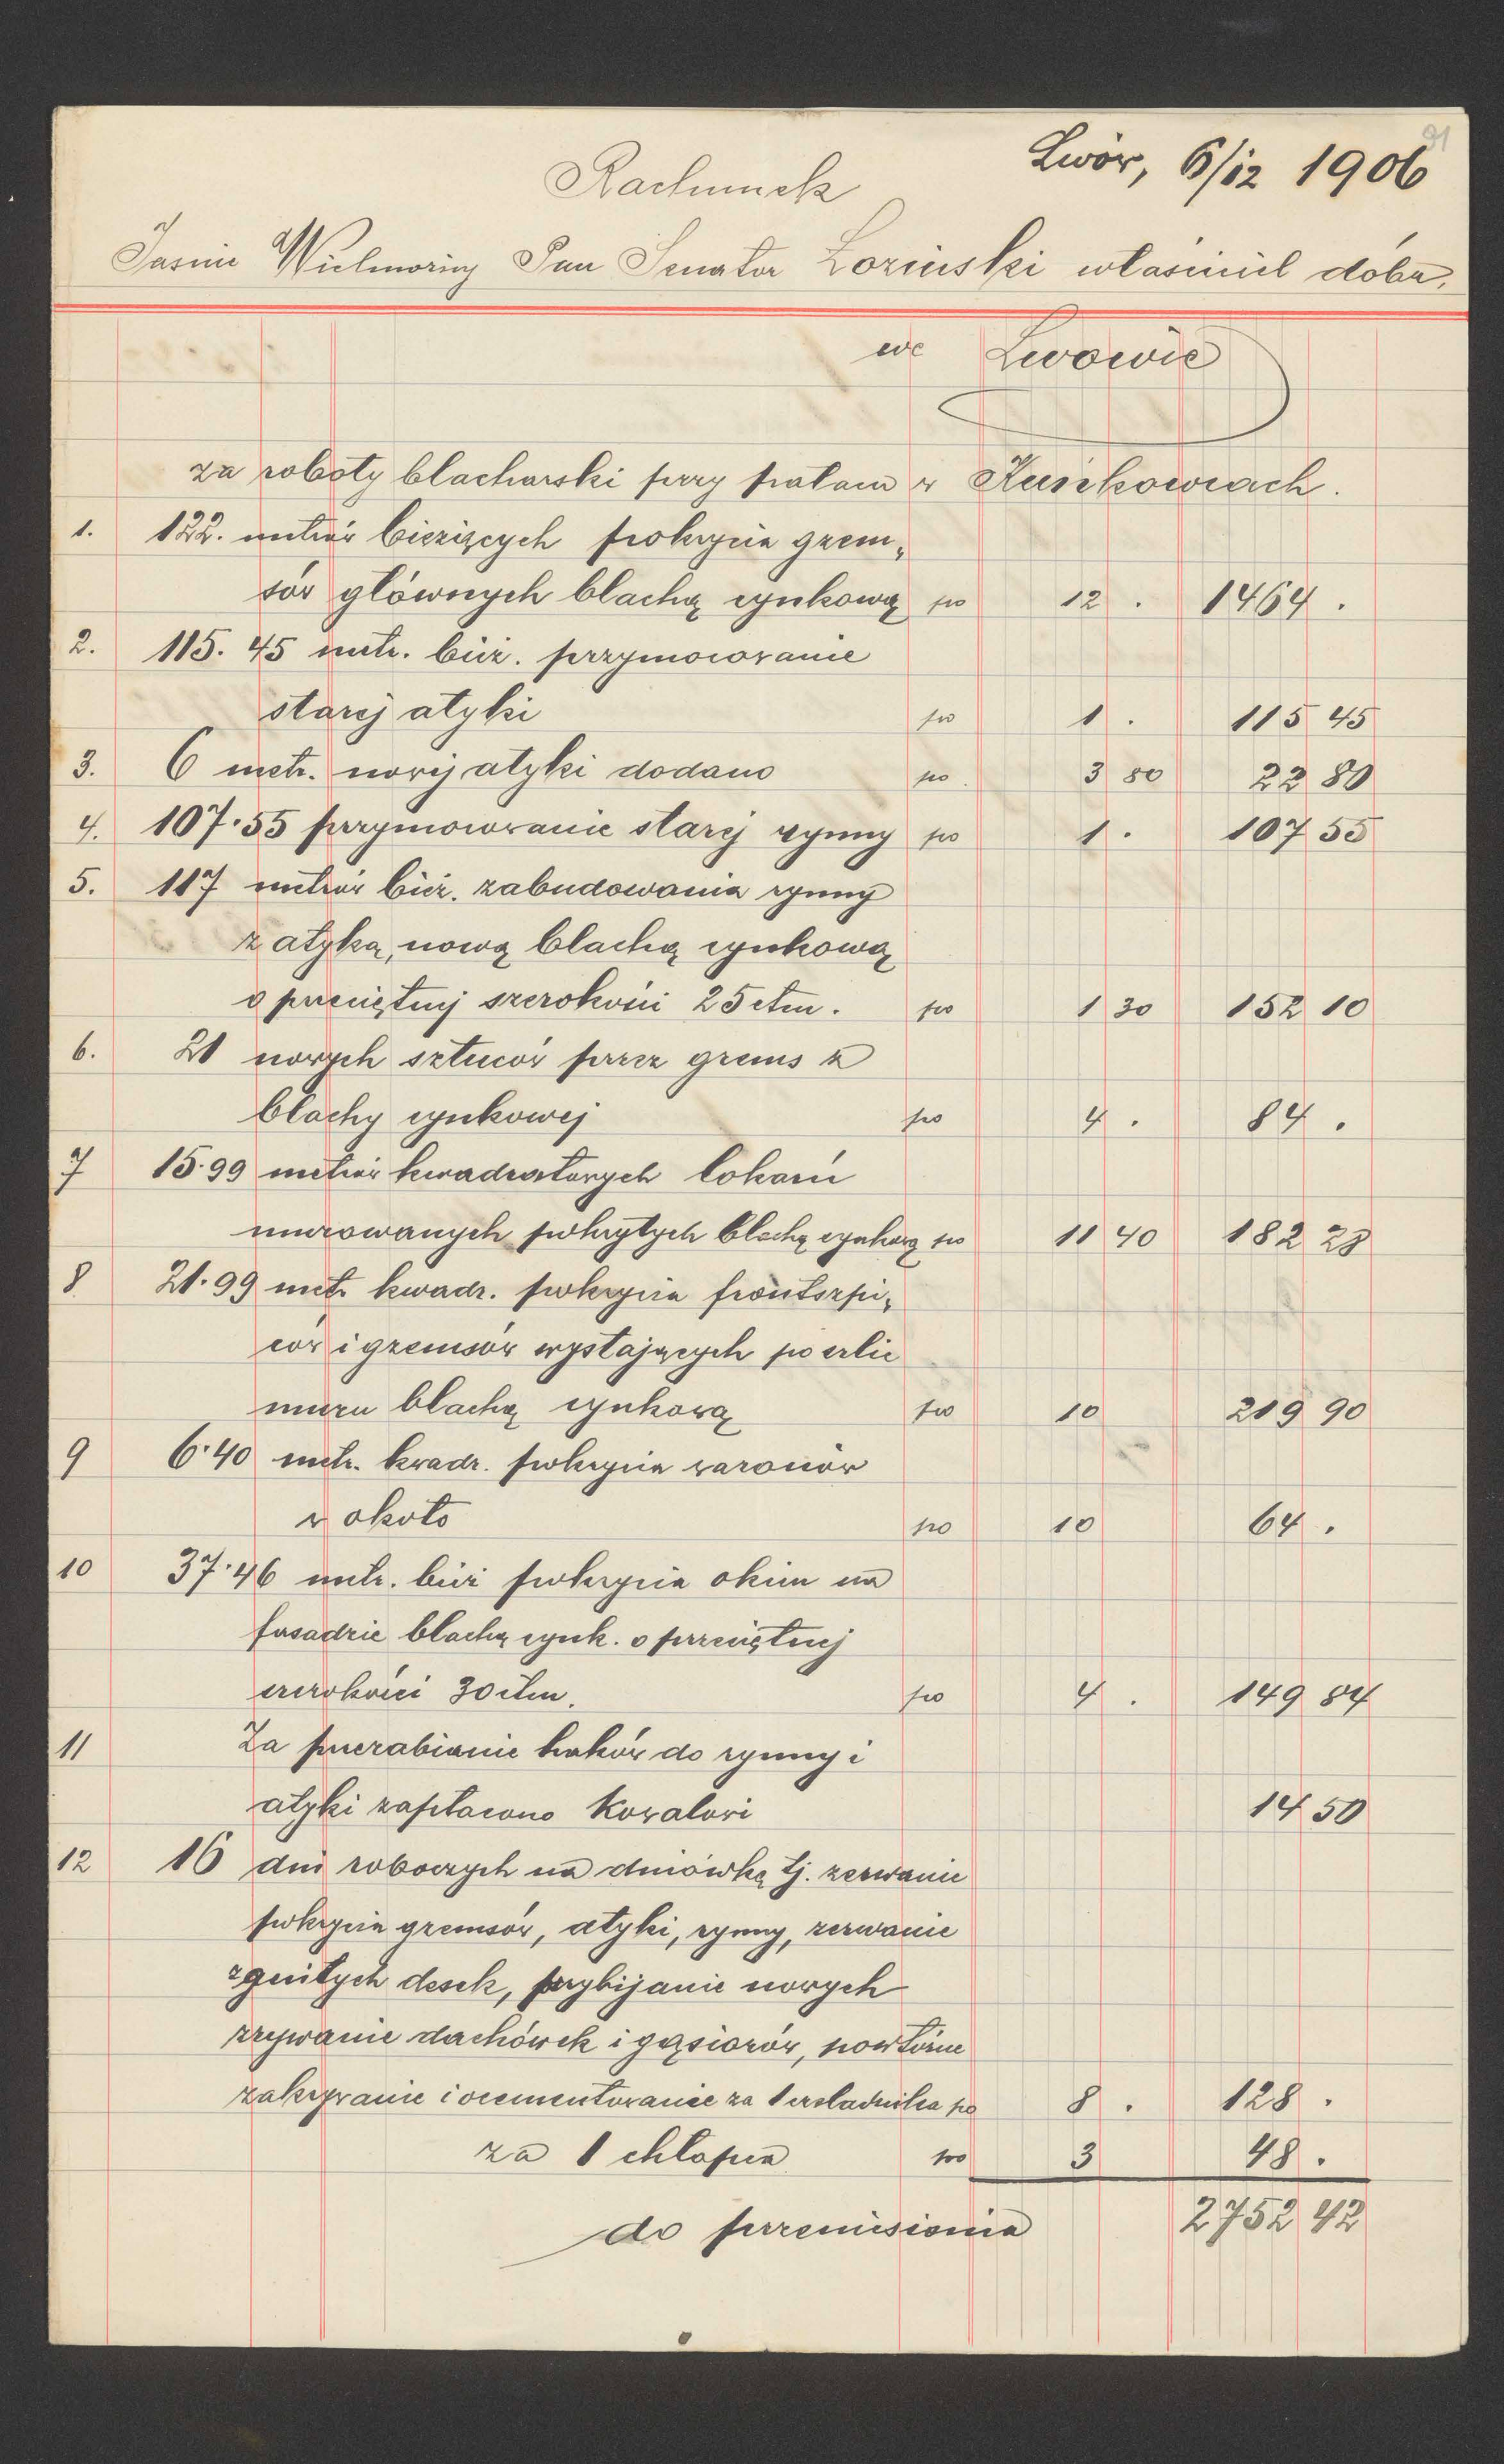 91
Lwów, 6/12 1906
Rachunek
Jaśnie Wielmożny Pan Senator Łoziński właściciel dóbr,
we Lwowie
za roboty blacharski przy pałacu w
1. 122. metrów bieżących pokrycia gzem„
sów głównych blachą cynkową po 12 . 1464 .
2. 115. 45 metr. bież. przymocowanie
starej atyki po 1 . 115 45
3. 6 metr. nowej atyki dodano po 3 80 22 80
4. 107·55 przymocowanie starej rynny po 1 . 107 55
5. 117 metrów bież. zabudowania rynny
z atyką, nową blachą cynkową
o przeciętnej szerokości 25 ctm. po 1 30 152 10
6. 21 nowych sztuców przez gzems z
blachy cynkowej po 4 . 84 .
7 15·99 metrów kwadratowych lokarń
murowanych pokrytych blachą cynkową po 11 40 182 28
8 21·99 metr kwadr. pokrycia frontszpi„
ców i gzemsów wystających po za lic
muru blachą cynkową po 10 219 90
9 6·40 metr. kwadr. pokrycia wazonów
w około po 10 64 .
10 37·46 metr. bież pokrycia okien na
fasadzie blachą cynk. o przeciętnej
szerokości 30 ctm. po 4 . 149 84
11 Za przerabianie haków do rynny i
atyki zapłacono kowalowi 14 50
12 16 dni roboczych na dniówkę tj. zerwanie
pokrycia gzemsów, atyki, rynny, zerwanie
zgniłych desek, przybijanie nowych
zrywanie dachówek i gąsiorów, powtórne
zakrywanie i ocementowanie za 1 czeladnika po 8 . 128 .
za 1 chłopca po 3 48 .
do przeniesienia 2752 42